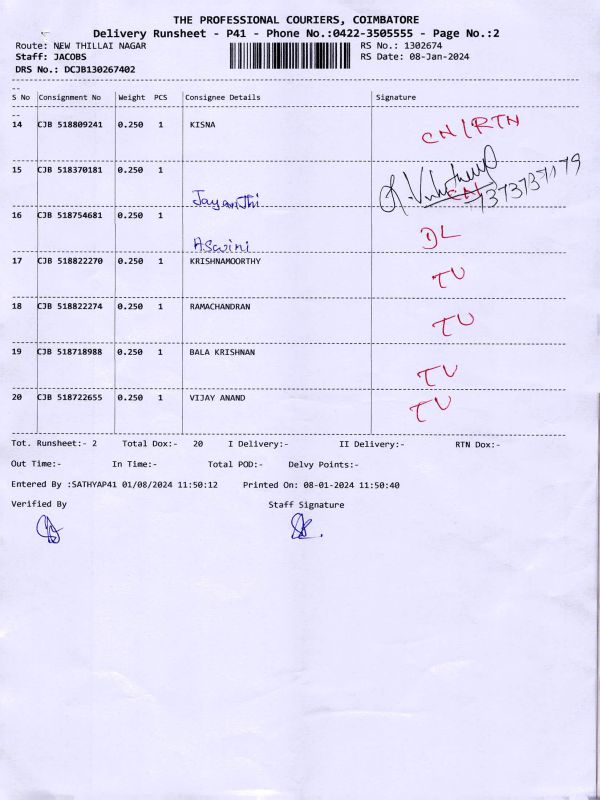 THE PROFESSIONAL COURIERS, COIMBATORE
Delivery Runsheet - P41 - Phone No.:0422-3505555 - Page No.:2
Route: NEW THILLAI NAGAR RS No.: 1302674
Staff: JACOBS RS Date: 08-Jan-2024
DRS No.: DCJB130267402
S No Consignment No Weight PCS Consignee Details Signature
14 CJB 518809241 0.250 1 KISNA CN/RTN
15 CJB 518370181 0.250 1
Jayanthi CN
16 CJB 518754681 0.250 1 DL
Aswini
17 CJB 518822270 0.250 1 KRISHNAMOORTHY TU
18 CJB 518822274 0.250 1 RAMACHANDRAN TU
19 CJB 518718988 0.250 1 BALA KRISHNAN TU
20 CJB 518722655 0.250 1 VIJAY ANAND TU
Tot. Runsheet:- 2 Total Dox:- 20 I Delivery:- II Delivery:- RTN Dox:-
Out Time:- In Time:- Total POD:- Delvy Points:-
Entered By :SATHYAP41 01/08/2024 11:50:12 Printed On: 08-01-2024 11:50:40
Verified By Staff Signature